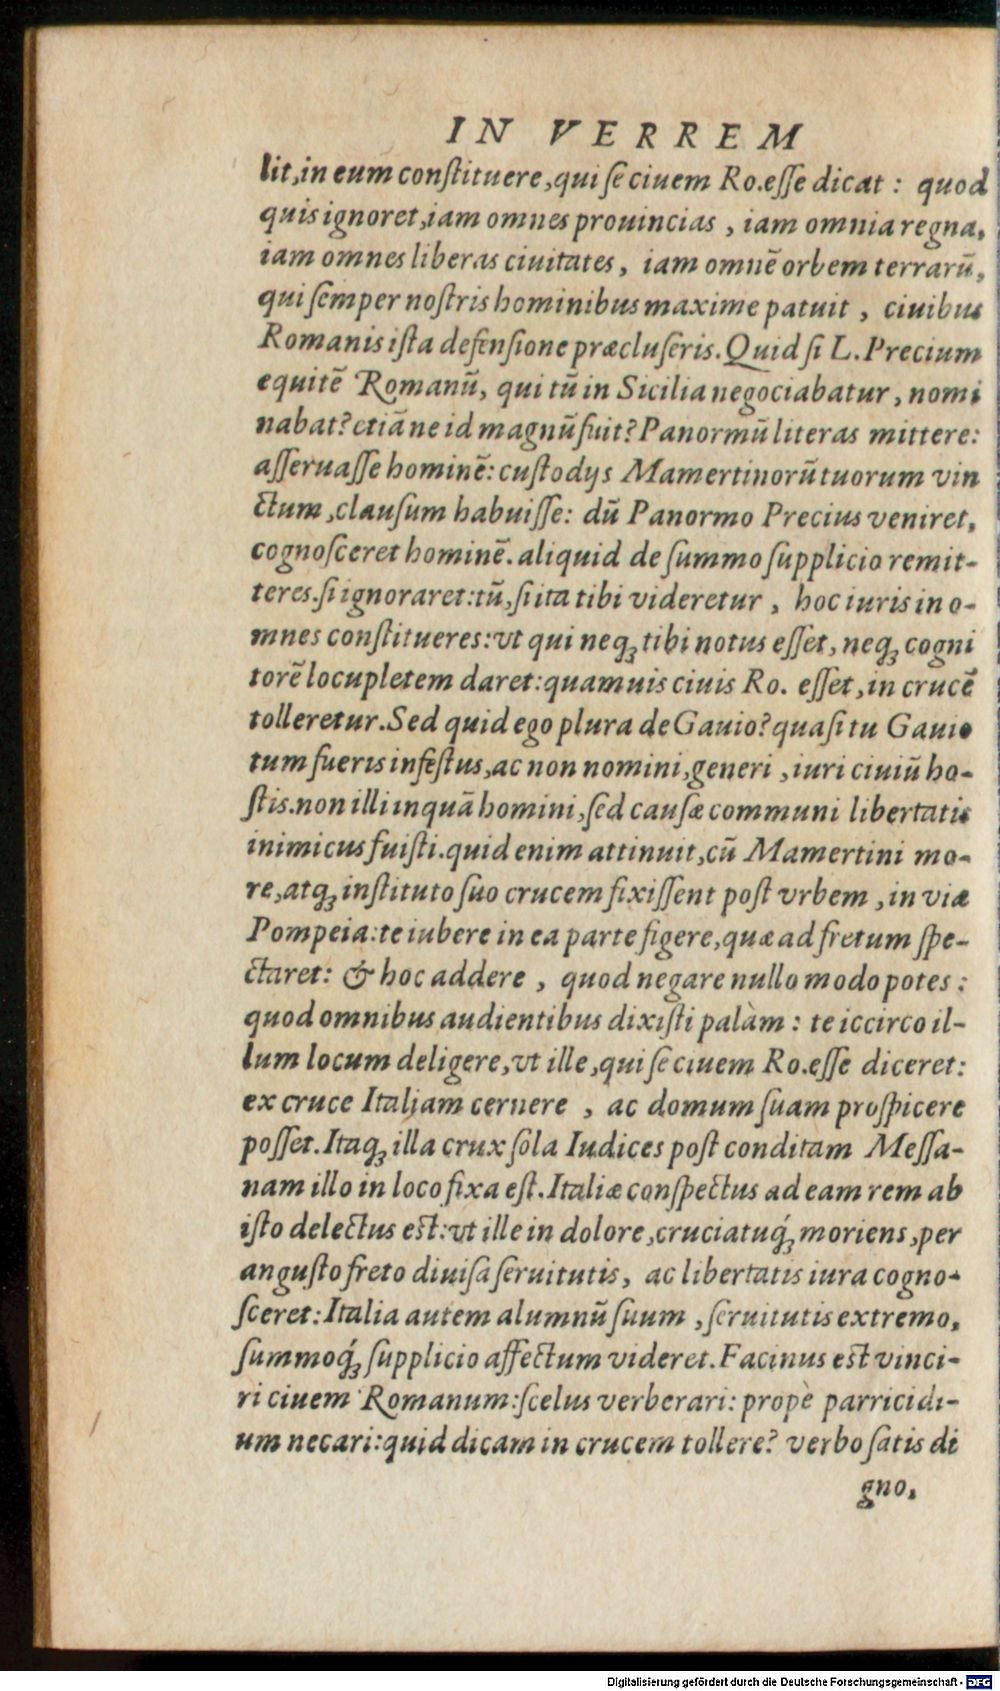 IN VERREM
lit,in eum conſtituere,qui ſe ciuem Ro.eſſe dicat : quod
quis ignoret,iam omnes prouincias , iam omnia regna,
iam omnes liberas ciuitates, iam omnē orbem terrarū,
qui ſemper noſtris hominibus maxime patuit , ciuibus
Romanis iſta defenſione præcluſeris. Quid ſi L. Precium
equitē Romanū, qui tū in Sicilia negociabatur , nomi
nabat? etiā ne id magnū fuit? Panormū literas mittere:
aſſeruaſſe hominē: cuſtodijs Mamertinorū tuorum vin
ctum ,clauſum habuiſſe: dū Panormo Precius veniret,
cognoſceret hominē. aliquid de ſummo ſupplicio remit-
teres.ſi ignoraret:tū,ſi ita tibi videretur , hoc iuris in o-
mnes conſtitueres:vt qui neqꝫ tibi notus eſſet, neqꝫ cogni
torē locupletem daret:quamuis ciuis Ro. eſſet,in crucē
tolleretur.Sed quid ego plura de Gauio?quaſi tu Gauio
tum fueris infeſtus,ac non nomini,generi , iuri ciuiū ho-
ſtis.non illi inquā homini,ſed cauſæ communi libertatis
inimicus fuiſti.quid enim attinuit,cū Mamertini mo-
re,atqꝫ inſtituto ſuo crucem fixiſſent poſt vrbem , in via
Pompeia:te iubere in ea parte figere,quæ ad fretum ſpe-
ctaret: & hoc addere , quod negare nullo modo potes :
quod omnibus audientibus dixiſti palàm : te iccirco il-
lum locum deligere,vt ille ,qui ſe ciuem Ro.eſſe diceret:
ex cruce Italiam cernere , ac domum ſuam proſpicere
poſſet. Itaqꝫ illa crux ſola Iudices poſt conditam Meſſa-
nam illo in loco fixa eſt. Italiæ conſpectus ad eam rem ab
iſto delectus eſt:vt ille in dolore,cruciatuq́ꝫ moriens,per
anguſto freto diuiſa ſeruitutis, ac libertatis iura cogno-
ſceret: Italia autem alumnū ſuum , ſeruitutis extremo,
ſummoq́ꝫ ſupplicio affectum videret. Facinus eſt vinci-
ri ciuem Romanum:ſcelus verberari: propè parricidi-
um necari:quid dicam in crucem tollere? verbo ſatis di
gno,
Digitalisierung gefördert durch die Deutsche Forschungsgemeinschaft - DFG